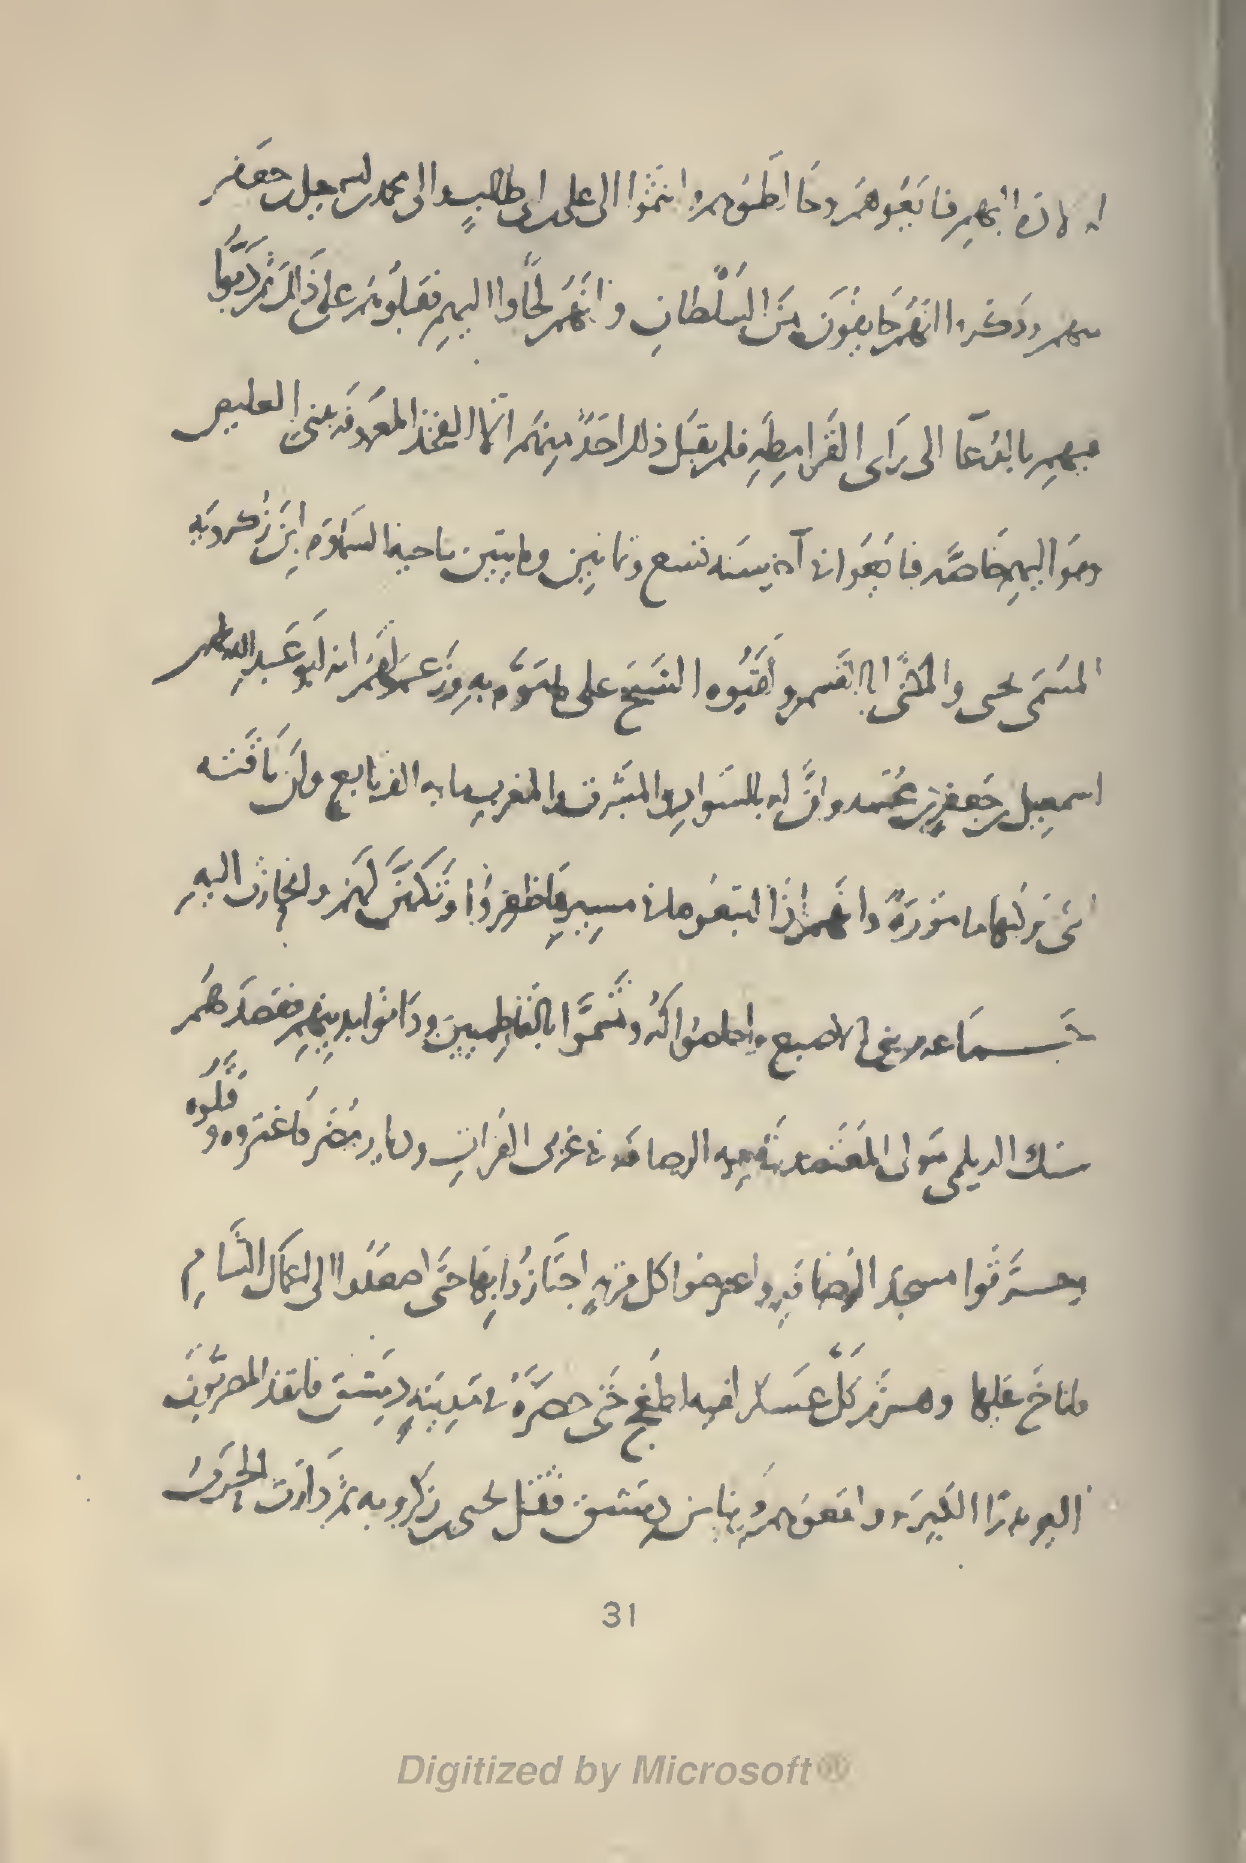 اولاده اليهم فبايعوهم وخالطوهم وانتموا الى على بن ابى طالب والى محمد بن اسمعيل بن جعفر
وذكروا انهم خايفون من السلطان وانهم لجاوا اليهم فقبلوهم على ذلك ثم دبوا
فيهم بالدعا الى راى القرامطه فلم يقبل ذلك احد منهم الا الفخذ المعروفه ببنى العليص
فبايعوا فى آخر سنه تسع وثمانين ومايتين بناحيه السماوه ابن زكرويه
المسمى يحيى والمكنى ابا القسم ولقبوه الشيخ على وزعم لهم انه ابو عبد الله بن
اسمعيل بن جعفر بن محمد وان له بالسواد والمشرق والمغرب مايه الف تابع وان ناقته
التى يركبها مامورة وانهم اذا اتبعوها فى مسيرها ظفروا وتكهن لهم وانحازت اليه
جماعه من بنى الاصبع واخلصوا له وتسموا بالفاطميين ودانوا بدينهم فقصدهم
سبك الديلمى مولى المعتضد بناحيه الرصافه فى غربى الفرات وديار مضر فاغتروه وقتلوه
وحرقوا مسجد الرصافه واعترضوا كل قريه اجتازوا بها حتى اصعدوا الى اعمال الشام
فاناخ عليها وهزم كل عسكر لقيه لطغج حتى حصره فى مدينه دمشق فانفذ المصريون
اليه بدرا الكبير فواقعهم قريبا من دمشق فقتل يحيى بن زكرويه ثم دارت الحرب
31
Digitized by Microsoft®